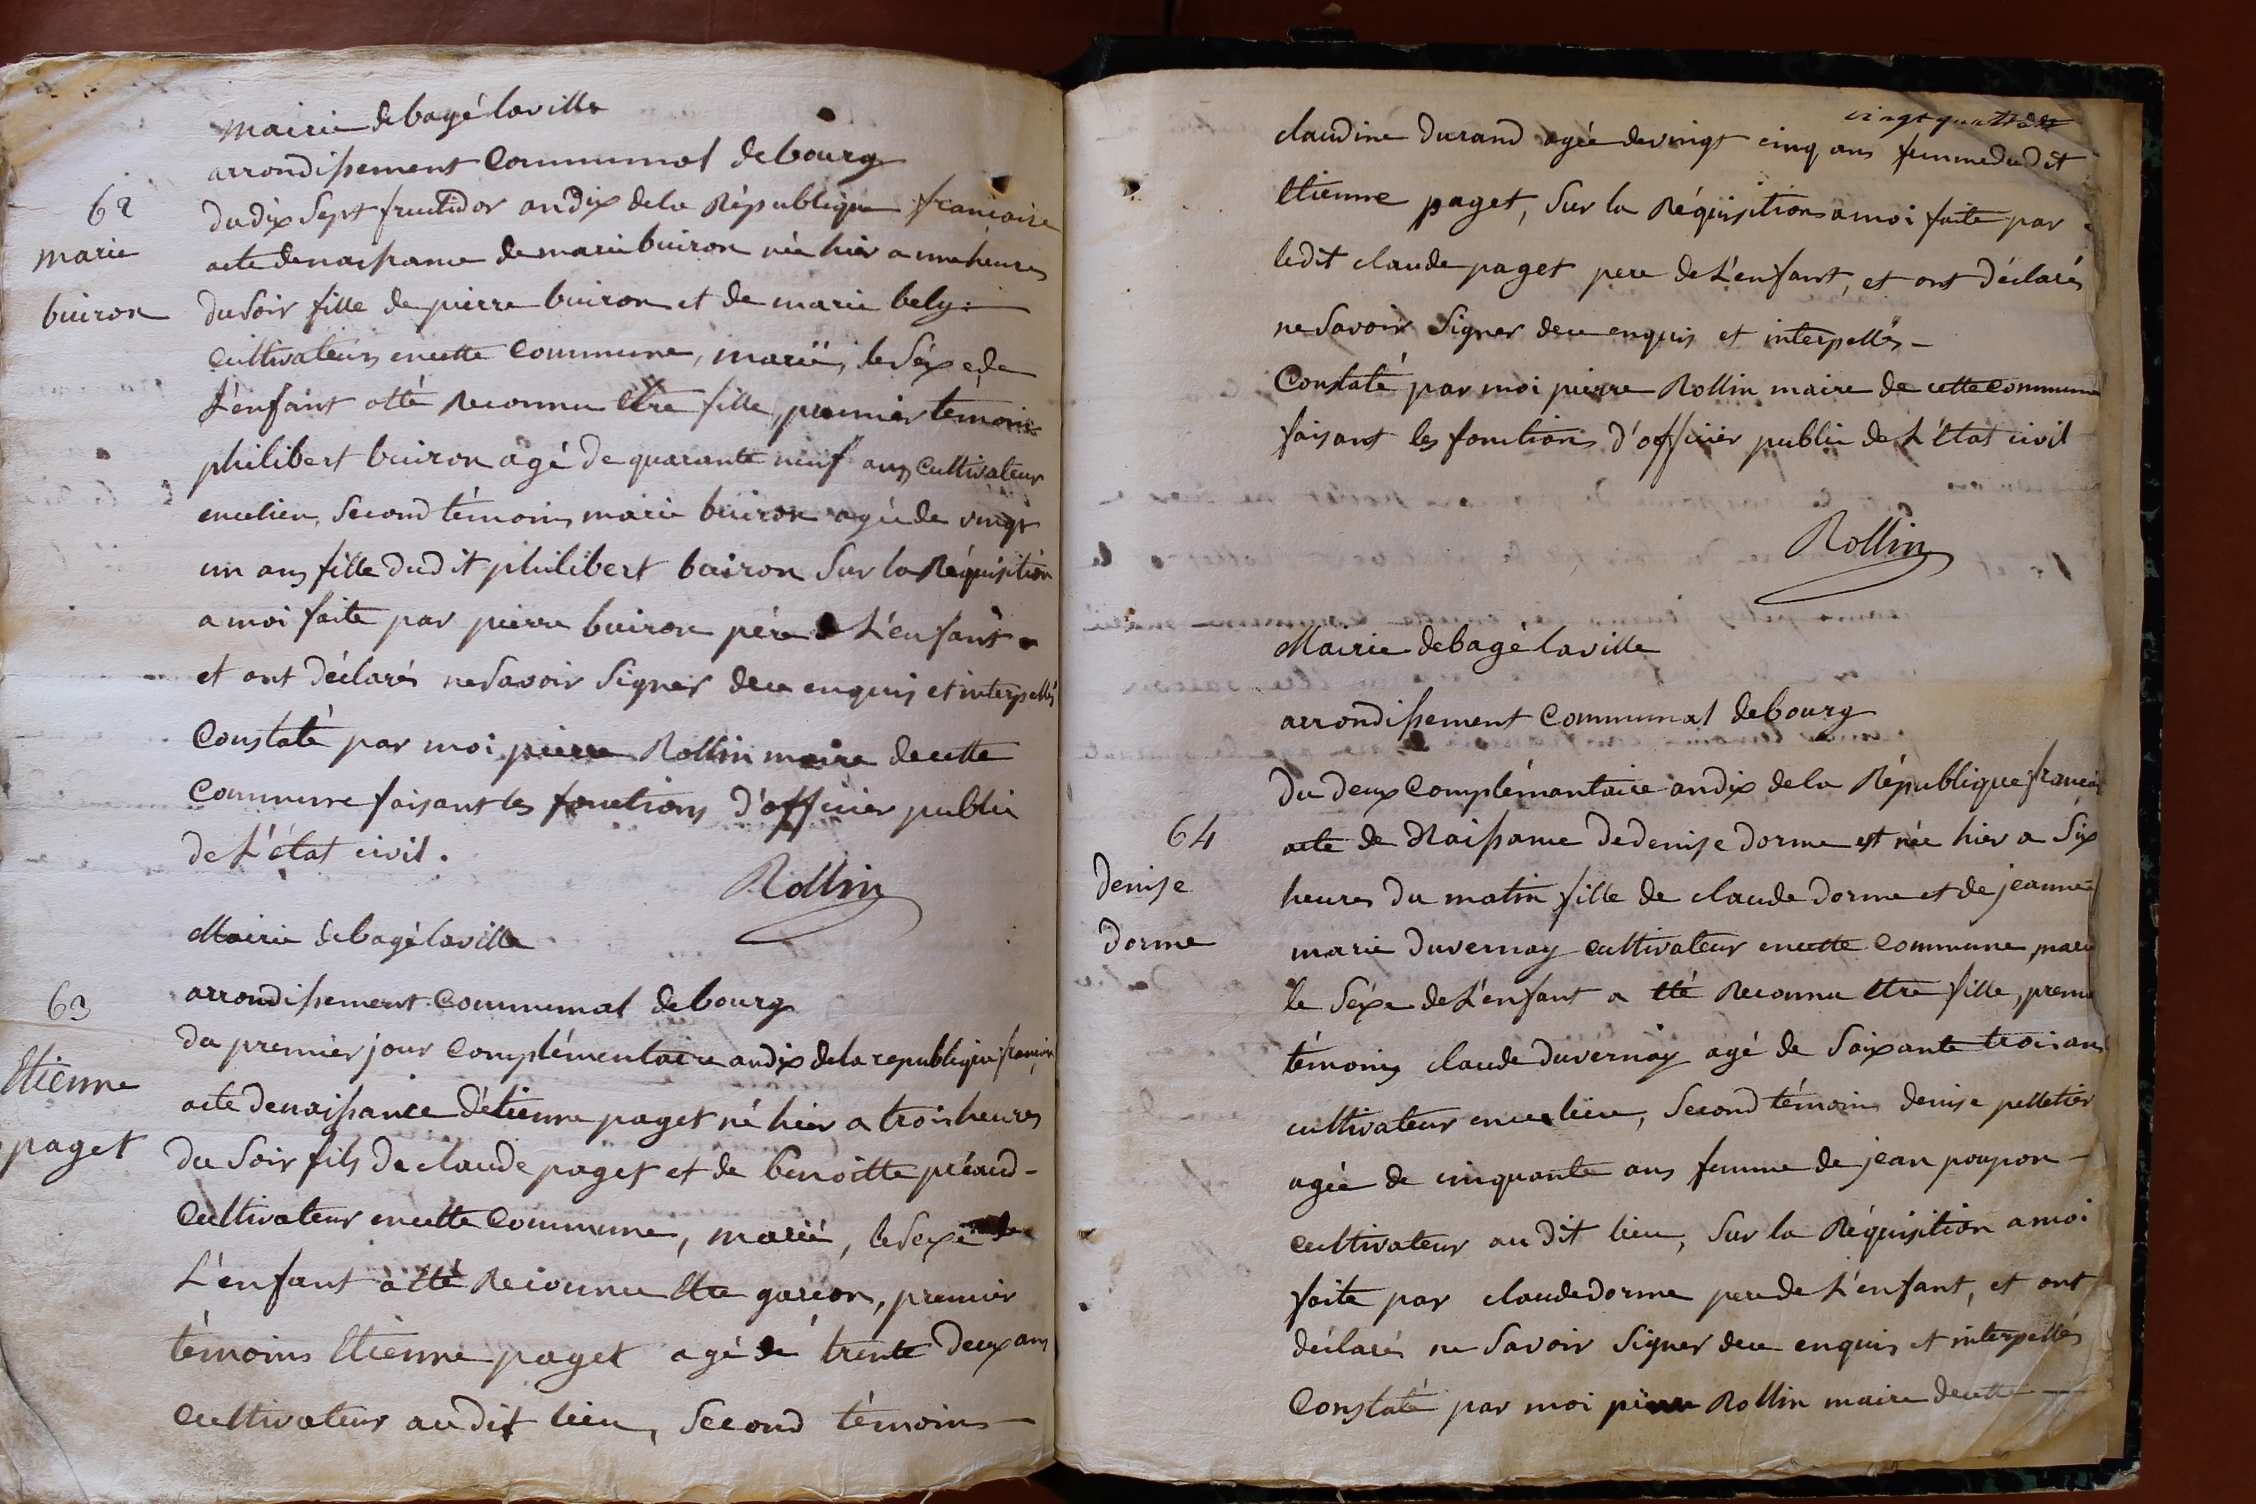 Mairie de bagé laville
arrondissement Communal de bourg
62
du dix Sept fructidor an dix de la République francaise
marie
acte de naissance de marie buiron née hier a une heures
buiron
du Soir fille de pierre buiron et de marie bely
Cultivateurs en cette Commune, marié, le Séxe de
L'enfant a été Reconnu être fille, premier témoins
philibert buiron agé de quarante neuf ans Cultivateur
en ce lieu, Second témoins marie buiron agée de vingt
un ans fille dudit philibert buiron Sur la Réquisition
a moi faite par pierre buiron pére de L'enfant
et ont déclarés ne Savoir Signer de ce enquis et interpellés
Constaté par moi pierre Rollin maire de cette
Commune faisant les fonctions d'officier public
de L'état civil.
Rollin
Mairie de bagé laville
arrondissement Communal de bourg
63
du premier jour Complémentaire an dix de la republique francaise
Etienne
acte de naissance d'étienne paget né hier a trois heures
paget
du Soir fils de claude paget et de benoitte préaud
Cultivateur en cette Commune, marié, le Sexe de
L'enfant a été Reconnu être garcon, premier
témoins Etienne paget agé de trente deux ans
Cultivateur audit lieu, Second témoins
vingt quatre
claudine durand agée de vingt cinq ans femme dudit
Etienne paget, Sur la Réquisition a moi faite par
ledit claude paget pere de L'enfant, et ont déclarés
ne Savoir Signer de ce enquis et interpellés
Constaté par moi pierre Rollin maire de cette commune
faisant les fonctions d'officier public de L'état civil
Rollin
Mairie de bagé laville
arrondissement Communal de bourg
du deux Complémantaire an dix de la République francai
64
acte de Naissance de denise dorme est née hier a Six
denise
heures du matin fille de claude dorme et de jeanne
dorme
marie duvernay cultivateur en cette Commune, marié
le Séxe de L'enfant a été Reconnu être fille, premier
témoins claude duvernay agé de Soixante trois ans
cultivateur en ce lieu, Second témoins denise pelletier
agée de cinquante ans femme de jean poupon
cultivateur audit lieu, Sur la Réquisition a moi
faite par claude dorme pere de L'enfant, et ont
déclarés ne Savoir Signer de ce enquis et interpellés
Constaté par moi pierre Rollin maire de cette